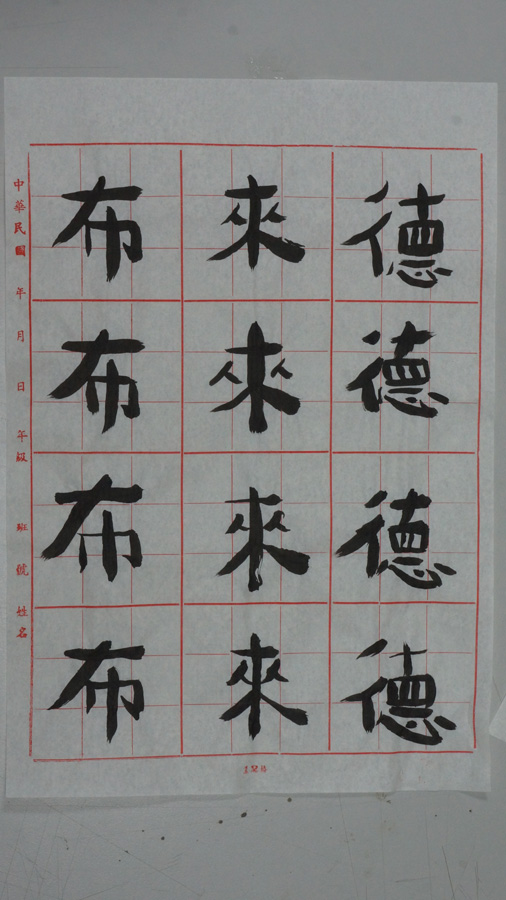 德德德德
來來來來
布布布布
中華民國 年 月 日 年級 班 號 姓名